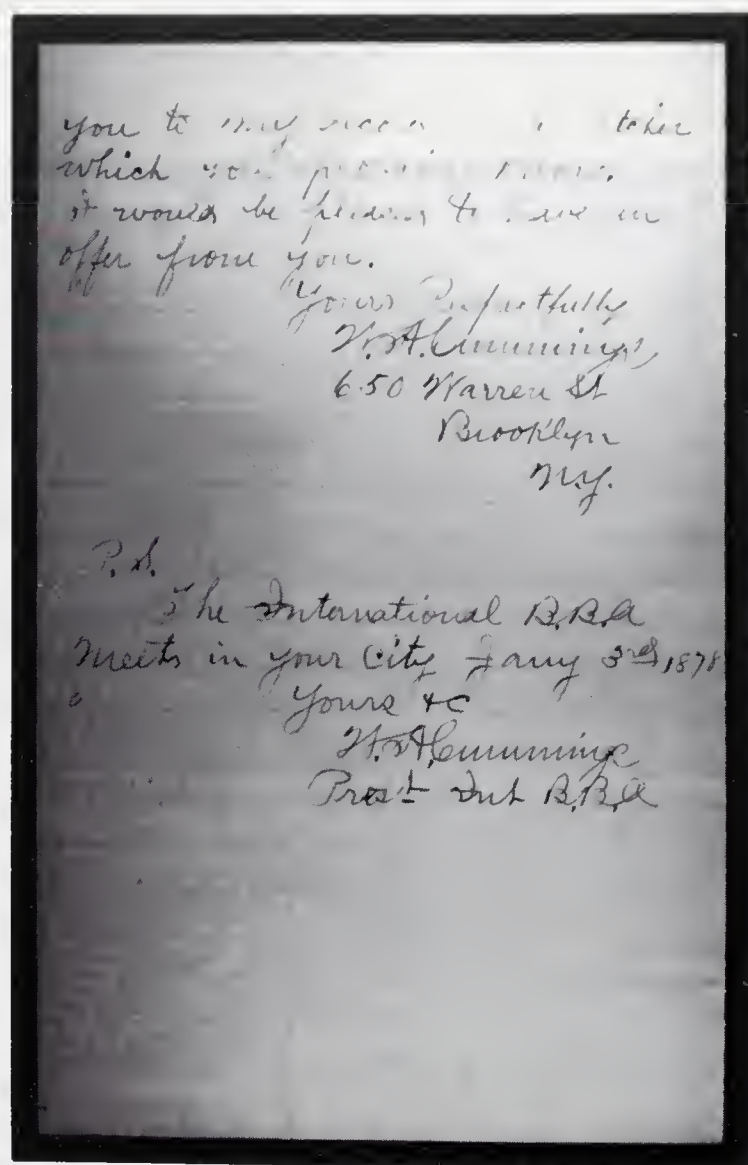 you to my
which you
it would be to have an
offer from you.
Yours Respectfully
W. A. Cummings,
650 Warren St
Brooklyn
N.Y.
P.S.
The International B.B.A
Meets in your City Jany 3rd, 1878
Yours &c
W. A. Cummings
Pres't Int B.B.A